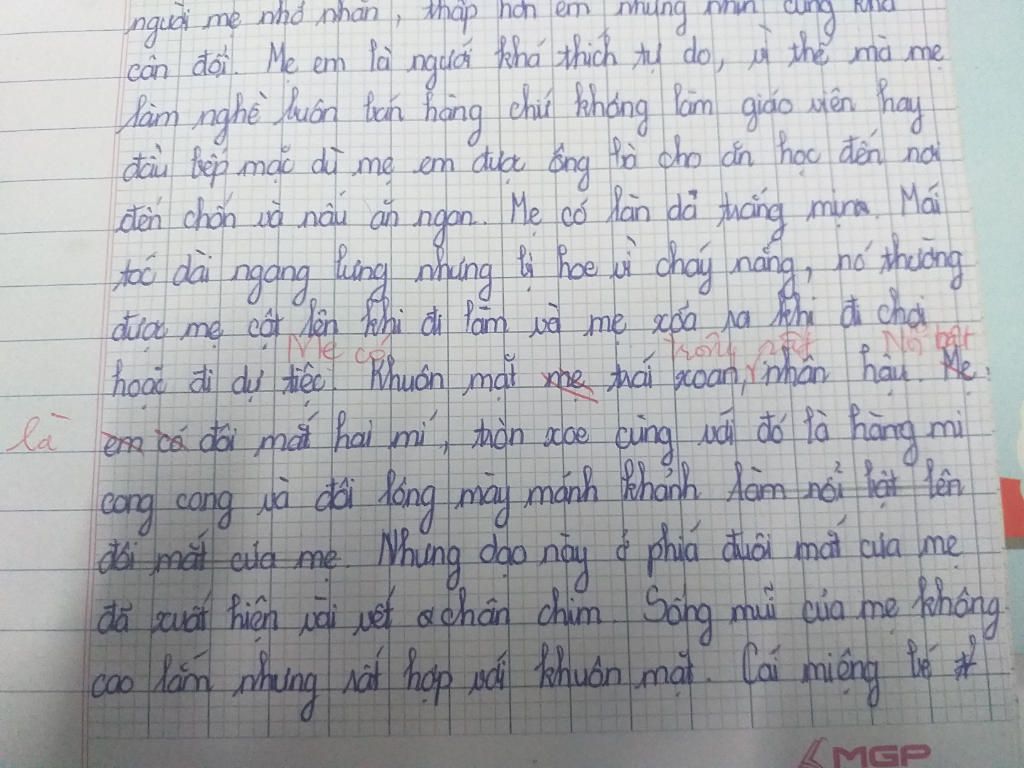 người mẹ nhỏ nhắn, thấp hơn em nhưng nhìn cũng khá
cân đối. Mẹ em là người khá thích tự do, vì thế mà mẹ
làm nghề buôn bán hàng chứ không làm giáo viên hay
đầu bếp mặc dù mẹ em được ông bà cho ăn học đến nơi
đến chốn và nấu ăn ngon. Mẹ có làn da trắng mịn. Mái
tóc dài ngang lưng nhưng bị hoe vì cháy nắng, nó thường
được mẹ cột lên khi đi làm và mẹ xõa ra khi đi chơi
Mẹ có trông rất Nổi bật
hoặc đi dự tiệc. Khuôn mặt mẹ trái xoan, nhân hậu. Mẹ
là em có đôi mắt hai mí, tròn xoe cùng với đó là hàng mi
cong cong và đôi lông mày mảnh khảnh làm nổi bật lên
đôi mắt của mẹ. Nhưng dạo này ở phía đuôi mắt của mẹ
đã xuất hiện vài vết chân chim. Sống mũi của mẹ không
cao lắm nhưng rất hợp với khuôn mặt. Cái miệng bé
MGP